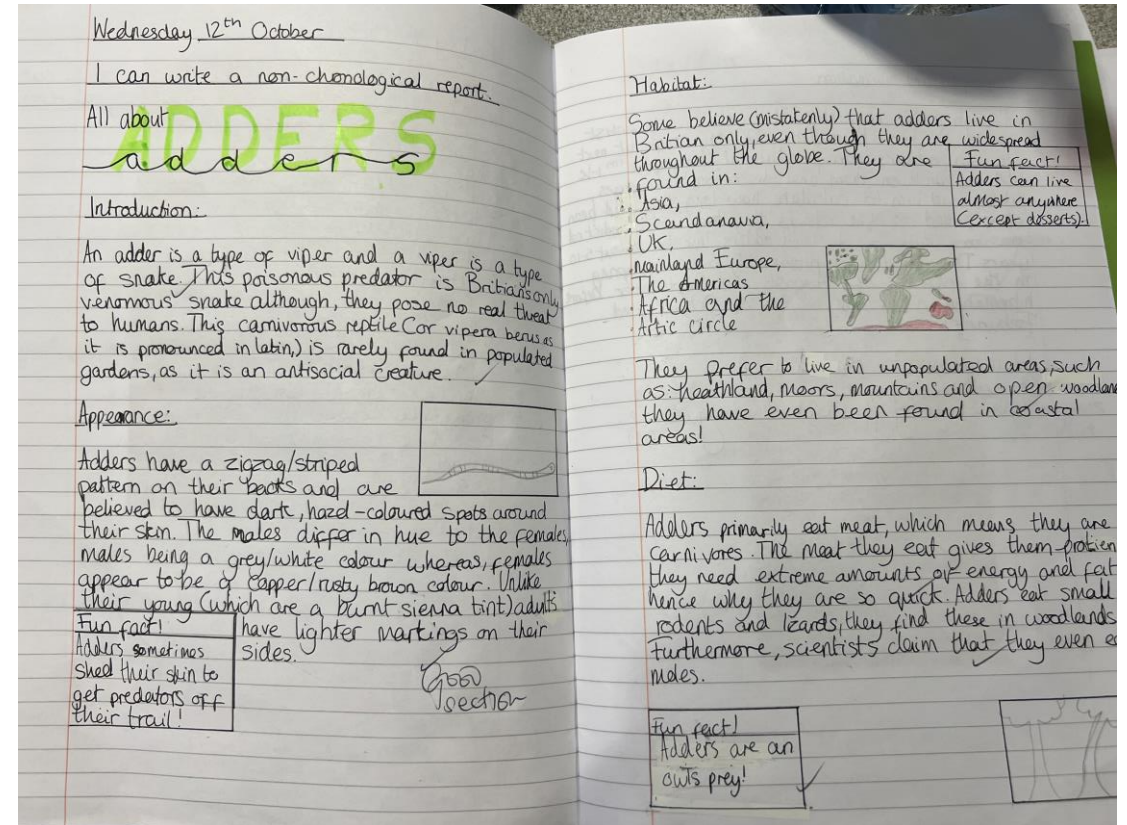 Wednesday 12th October
I can write a non-chonological report.
All about ADDERS
adders
Introduction:
An adder is a type of viper and a viper is a type
of snake. This poisonous predator is Britians only
venomous snake although, they pose no real threat
to humans. This carnivorous reptile (or vipera berus as
it is pronounced in latin,) is rarely found in populated
gardens, as it is an antisocial creature.
Appearance:
Adders have a zigzag/striped
pattern on their backs and are
believed to have dark, hazel-coloured spots around
their skin. The males differ in hue to the females,
males being a grey/white colour whereas, females
appear to be a copper/rusty brown colour. Unlike
their young (which are a burnt sienna tint) adults
have lighter markings on their
sides.
Fun fact!
Adders sometimes
shed their skin to
get predators off
their trail!
Good
section
Habitat:
Some believe (mistakenly) that adders live in
Britian only, even though they are widespread
throughout the globe. They are
found in:
Asia,
Scandanavia,
UK,
mainland Europe,
The Americas
Africa and the
Artic circle
Fun fact!
Adders can live
almost anywhere
(except desserts).
They prefer to live in unpopulated areas, such
as: heathland, moors, mountains and open woodland
they have even been found in coastal
areas!
Diet:
Adders primarily eat meat, which means they are
carnivores. The meat they eat gives them protien
they need extreme amounts of energy and fat
hence why they are so quick. Adders eat small
rodents and lizards, they find these in woodlands
Furthermore, scientists claim that they even
moles.
Fun fact!
Adders are an
owls prey!